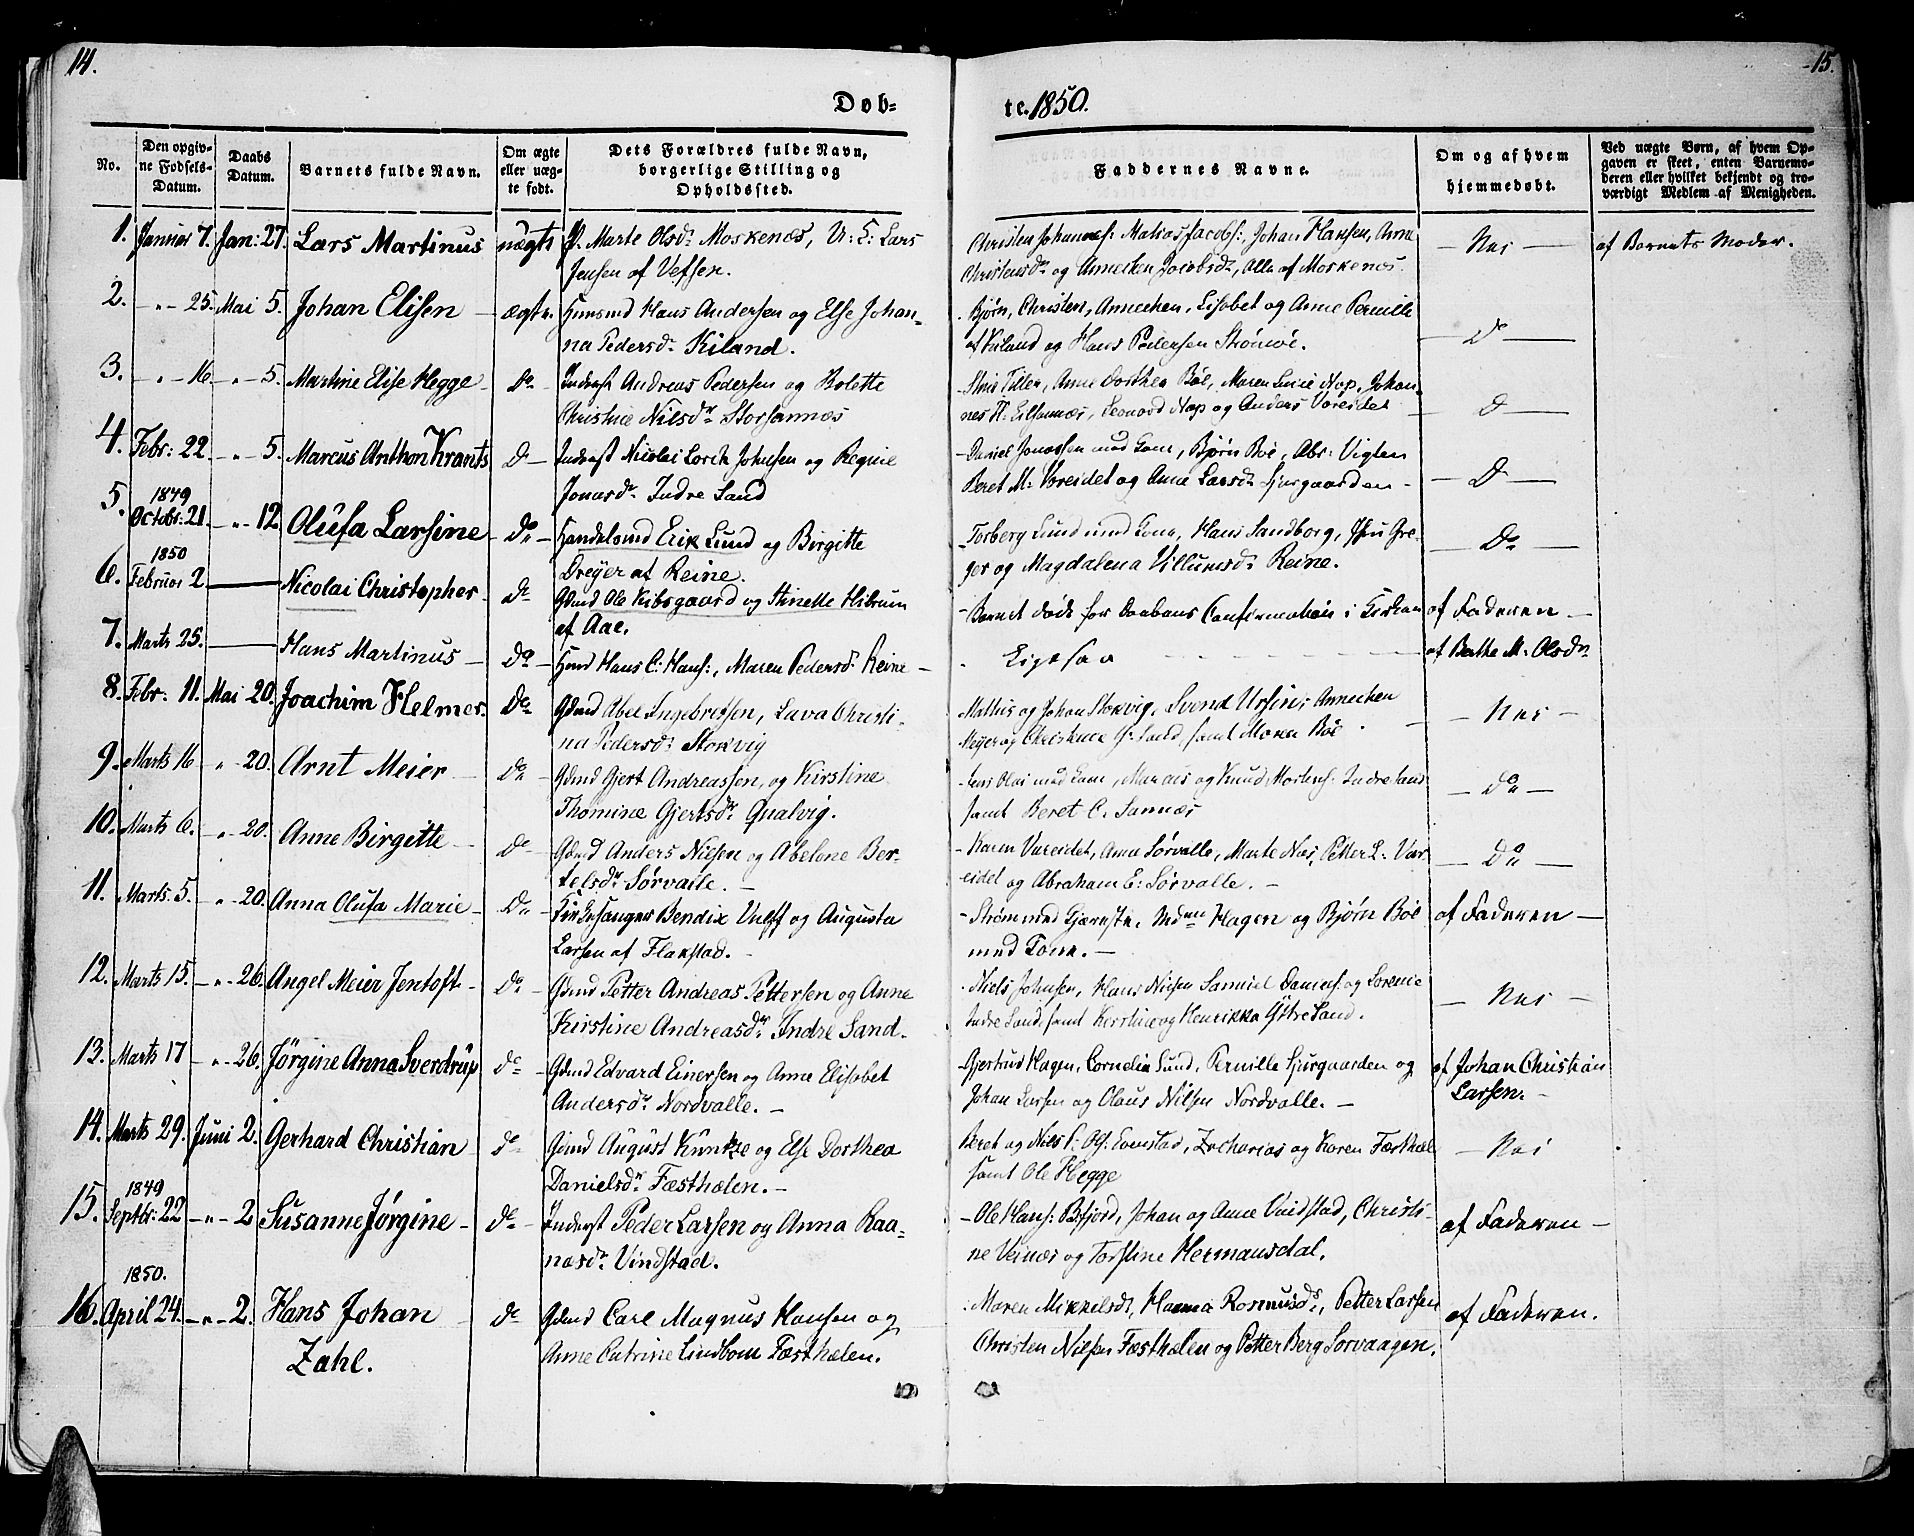 14.
15.
Døb-
te. 1850.
No.
Den opgiv-
ne Fødsels-
Datum.
Daabs
Datum.
Barnets fulde Navn.
Om ægte
eller uæg-
te født.
Dets Forældres fulde Navn,
borgerlige Stilling og
Opholdssted.
Faddernes Navne.
Om og af hvem
hjemmedøbt.
Ved uægte Børn, af hvem Op-
gaven er skeet, enten Barnemo-
deren eller hvilket bekjendt og tro-
værdigt Medlem af Menigheden.
1. Januar 7. Jan: 27. Lars Martinus uægte P. Marte Olsdr Moskenæs, U: C: Lars
Jensen af Vefsen.
Christen Johannes: Matias Jacobs:, Johan Hansen, Anne
Christensdr og Annechen Jacobsdr, Alle af Moskenes.
— Nei — af Barnets Moder.
2. — " — 25. Mai 5. Johan Elisen — ægte. Huusmd Hans Andersen og Else Johan-
na Pedersdr Kiland.
Bjørn, Christen, Annechen, Lisabet og Anne Pernille
af Kiland og Hans Pedersen Strømøe.
— Do —
3. — " — 16. — " — 5. Martine Elise Hegge — Do — Inderst Andreas Pedersen og Bolette
Christine Nilsdr Storsannæs
Anne Dorthea Böe, Maren Lucie Nap, Johan-
nes H: Leonard Nap og Anders Vareidet
— D —
4. Febr: 22. — " — 5. Marcus Anthon Krants D — Inderst Nicolai Lorck Johnsen og Regine
Jonasdr Indre Sand
Daniel Jonassen med Kone, Bjørn Böe, Abr: Vigten
Beret M: Vareidet og Anne Larsdr Hjurgaarden —
— D —
5. 1849
Octobr: 21. — " — 12. Olufa Larsine — Do — Handelsmd Erik Lund og Birgitte
Dreyer af Reine.
Torberg Lund med Kone, Hans Sandborg, Gre-
ger og Magdalena Villumsdr Reine.
— Do —
6. 1850
Februar 2. — Nicolai Christopher — Do — Gdmd Ole Kibsgaard og Stinette
af Aae.
Barnet døde før Daabens Confirmation i Kirken
af Faderen —
7. Marts 25. — Hans Martinus — Do — Hmd Hans C: Hans:, Maren Pedersdr Reine —
Ligesaa
af Berthe M: Olsdr
8. Febr. 11. Mai 20. Joachim Helmer. Do Gdmd Abel Ingebretsen, Lava Christi-
na Pedersdr Stokvig
Mathis og Johan Stokvig, Svend Ursin, Annechen
Meyer og Sand, samt Maren Böe
— Nei —
9. Marts 16 — " — 20. Arnt Meier — Do Gdmd Gjert Andreassen, og Kirstine
Thomine Gjertsdr Qvalvig.
Jens Olai med Kone, Marcus og Knud Mortens: Indre Sand
samt Beret C. Sannæs
— Do —
10. Marts 6. — " — 20. Anne Birgitte — Do — Gdmd Anders Nilsen og Abelone Ber-
telsdr Sørvalle. —
Karen Vareidet, Anne Sørvalle, Marte Næs, Petter L: Var-
eidet og Abraham E: Sørvalle. —
— Do —
11. Marts 5. — " — 20. Anna Olufa Marie — Do — Kirkesanger Bendix Vulff og Augusta
Larsen af Flakstad. —
Strøm med Md Hagen og Bjørn Böe
med Kone. —
af Faderen —
12. Marts 15. — " — 26. Angel Meier Jentoft — Do — Gdmd Petter Andreas Pettersen og Anne
Kirstine Andreasdr Indre Sand.
Niels Johnsen, Hans Nilsen Samuel Daniels: og Sorenie
Indre Sand, samt Kirstine og Henrikka Ytre Sand.
— Nei —
13. Marts 17 — " — 26. Jørgine Anna Sverdrup Do — Gdmd Edvard Einersen og Anne Elisabet
Andersdr Nordvalle. —
Gjertrud Hagen, Cornelia Lund, Pernille Hjurgaarden og
Johan Larsen og Olaus Nilsen Nordvalle. —
af Johan Christian
Larsen. —
14. Marts 29. Juni 2. Gerhard Christian — Do — Gdmd August Küntze og Else Dorthea
Danielsdr Fæsthælen. —
Beret og Niels P. Ols: Evenstad, Zacharias og Karen Fæsthæl
samt Ole Hegge
— Nei
15. 1849
Septbr: 22 — " — 2 Susanne Jørgine — Do — Inderst Peder Larsen og Anna Raa-
næsdr Vindstad.
— Ole Hans: Befjord, Johan og Anne Vindstad, Christi-
ne Veinæs og Torstine Hermansdal.
af Faderen —
16. 1850.
April 24. — " — 2. Hans Johan
Zahl.
Do Gdmd Carl Magnus Hansen og
Anne Catrine Lindbom Fæsthælen.
Maren Mikkelsdr, Hanna Rasmusdr, Petter Larsen
Christen Nilsen Fæsthælen og Petter Berg Sørvaagen.
af Faderen.